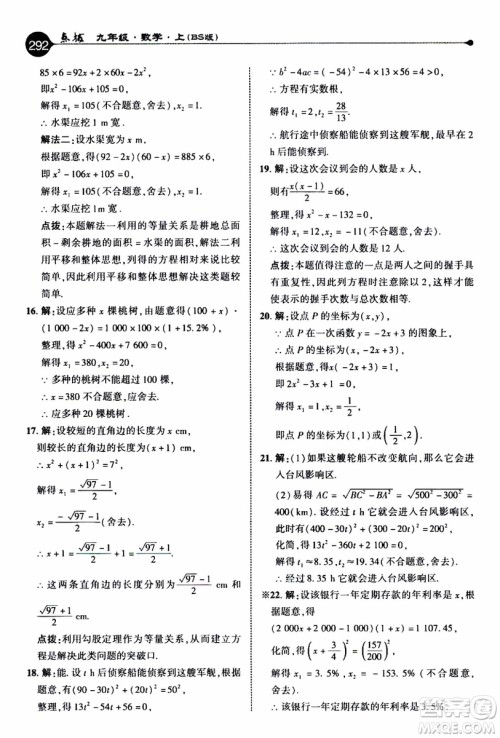 292 点拨 九年级·数学·上(BS版)
85×6=22×10×6×
即x²-106x+105=0.
解得x₁=105(不合题意,舍去),x₂=1.
∴水渠应挖1m宽.
解法二:设水渠宽为x m,
根据题意,得(92-2x)(60-x)=885×6.
即x²-106x+105=0.
解得x₁=105(不合题意,舍去),x₂=1.
∴水渠应挖1m宽.
点拨:本题解法一利用的等量关系是耕地总面
积-剩余耕地的面积=水渠的面积,解法二利用
平移和整体思想,体现了这类题整体考虑较
简单.
16. 解:设应多种x棵桃树,根据题意,得(100+x)·
整理,得x²-400x+7 600=0.
解得x₁=380,x₂=20.
∵多种的桃树不能超过100棵,
∴x=380不合题意,舍去.
∴应多种20棵桃树.
17. 解:设较短的直角边的长度为x cm,
则较长的直角边的长度为(x+1)cm.
∴x²+(x+1)²=7².
解得x₁=(√97-1)/2,
x₂=(-√97-1)/2(舍去).
∴x+1=(√97-1)/2+1=(√97+1)/2.
∴这两条直角边的长度分别为(√97-1)/2 cm和
(√97+1)/2 cm.
点拨:利用勾股定理构造一元二次方程模型是解
决此类问题的突破口.
18. 解:能.设t h后侦察船能侦察到这艘军舰,则
根据题意,得
(90-30t)²+(50-20t)²=50²,
整理,得13t²-54t+81=0.
∵b²-4ac=
∴方程有实数根.
解得t₁=2,t₂=28/13.
∴航行途中侦察船能侦察到这艘军舰,最早2
h后能侦察到.
19. 解:设这次会议到会的人数是x人,
则有x(x-1)/2=66,
整理,得x²-x-132=0.
解得x₁=12,x₂=-11(舍去).
∴这次会议到会的人数是12人.
点拨:本题值得注意的一点是两人之间的握手具
有重复性,不能重复计算,因此应除以2,
使总的握手次数与总人数之间建立等量关系.
20. 解:设点P的坐标为(x,y),
∵点P在一次函数y=-2x+3的图象上,
∴点P的坐标为(x,-2x+3).
根据题意,得x(-2x+3)=1.
解得x₁=1,x₂=1/2.
即点P的坐标为(1,1)或(1/2,2).
21. 解:(1)如果这艘轮船不改变航向,那么它会进
入台风影响区.
(2)易得AC=√(BC²-BA²)=√(500²-300²)=
400(km).
根据题意设这艘轮船从接到报警开始,
经过t h就会进入台风影响区,
此时有(400-30t)²+(300-20t)²=200².
化简,得13t²-360t+2 100=0.
解得t₁≈8.35,t₂≈19.34(不合题意,舍去).
∴经过8.35 h它就会进入台风影响区.
※22. 解:设该银行一年定期存款的年利率是x,根
据题意,得
(2 000+2 000x-1 000)(1+x)=1 107.45,
化简,得(x+3/4)²=(157/200)².
解得x₁=3.5%,x₂=-153.5%(不合题意,
舍去).
∴该银行一年定期存款的年利率是3.5%.